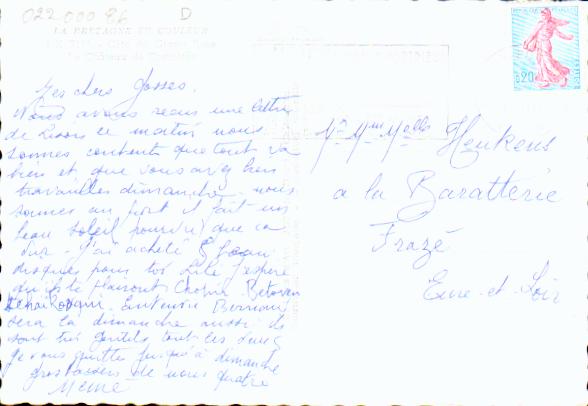 022 000 86
D
LA BRETAGNE EN COULEUR
Mes chers Gosses.
Nous avons reçu une lettre
de vous ce matin nous
sommes contents que tout va
bien et que vous avez bien
travailles dimanche - nous
sommes au port il fait un
beau soleil pourvu que ca
dur - j'ai acheté 5 beau
disques pour toi Lile j'espere
qu'ils te plairont Chopin - Betoven
sera la dimanche aussi ils
sont très gentils tout les deux
je vous quitte jusqu'à dimanche
gros baisers de nous quatre
Mémé
0,20
Mr Mme Melles Heukens
a la Baratterie
Frazé
Eure-et-Loir